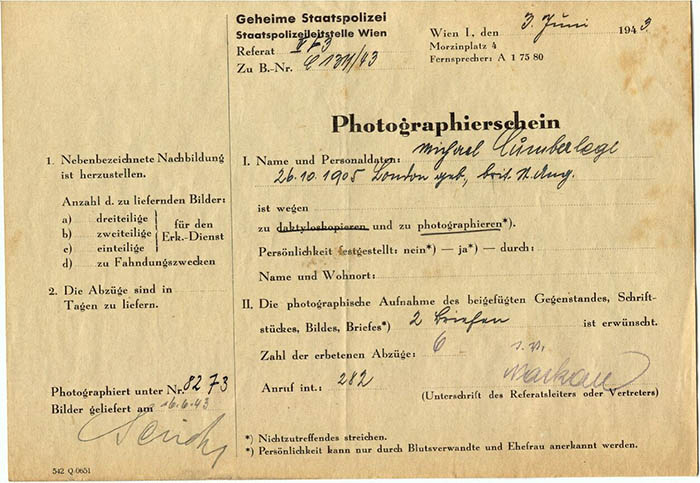 Geheime Staatspolizei
Staatspolizeileitstelle Wien
Referat
Zu B.-Nr.
Wien I., den 3. Juni 1943
Morzinplatz 4
Fernsprecher: A 1 75 80
Photographierschein
1. Nebenbezeichnete Nachbildung
ist herzustellen.
Anzahl d. zu liefernden Bilder:
a) dreiteilige
b) zweiteilige
c) einteilige
für den
Erk.-Dienst
d) zu Fahndungszwecken
2. Die Abzüge sind in
Tagen zu liefern.
Photographiert unter Nr. 8273
Bilder geliefert am 16.6.43
542 Q-0651
I. Name und Personaldaten: Michael Cumberlege
26.10.1905 London geb., brit. St. Ang.
ist wegen
zu daktyloskopieren und zu photographieren*).
Persönlichkeit festgestellt: nein*) — ja*) — durch:
Name und Wohnort:
II. Die photographische Aufnahme des beigefügten Gegenstandes, Schrift-
stückes, Bildes, Briefes*) 2 Briefen ist erwünscht.
Zahl der erbetenen Abzüge: 6
Anruf int.: 282
(Unterschrift des Referatsleiters oder Vertreters)
*) Nichtzutreffendes streichen.
*) Persönlichkeit kann nur durch Blutsverwandte und Ehefrau anerkannt werden.